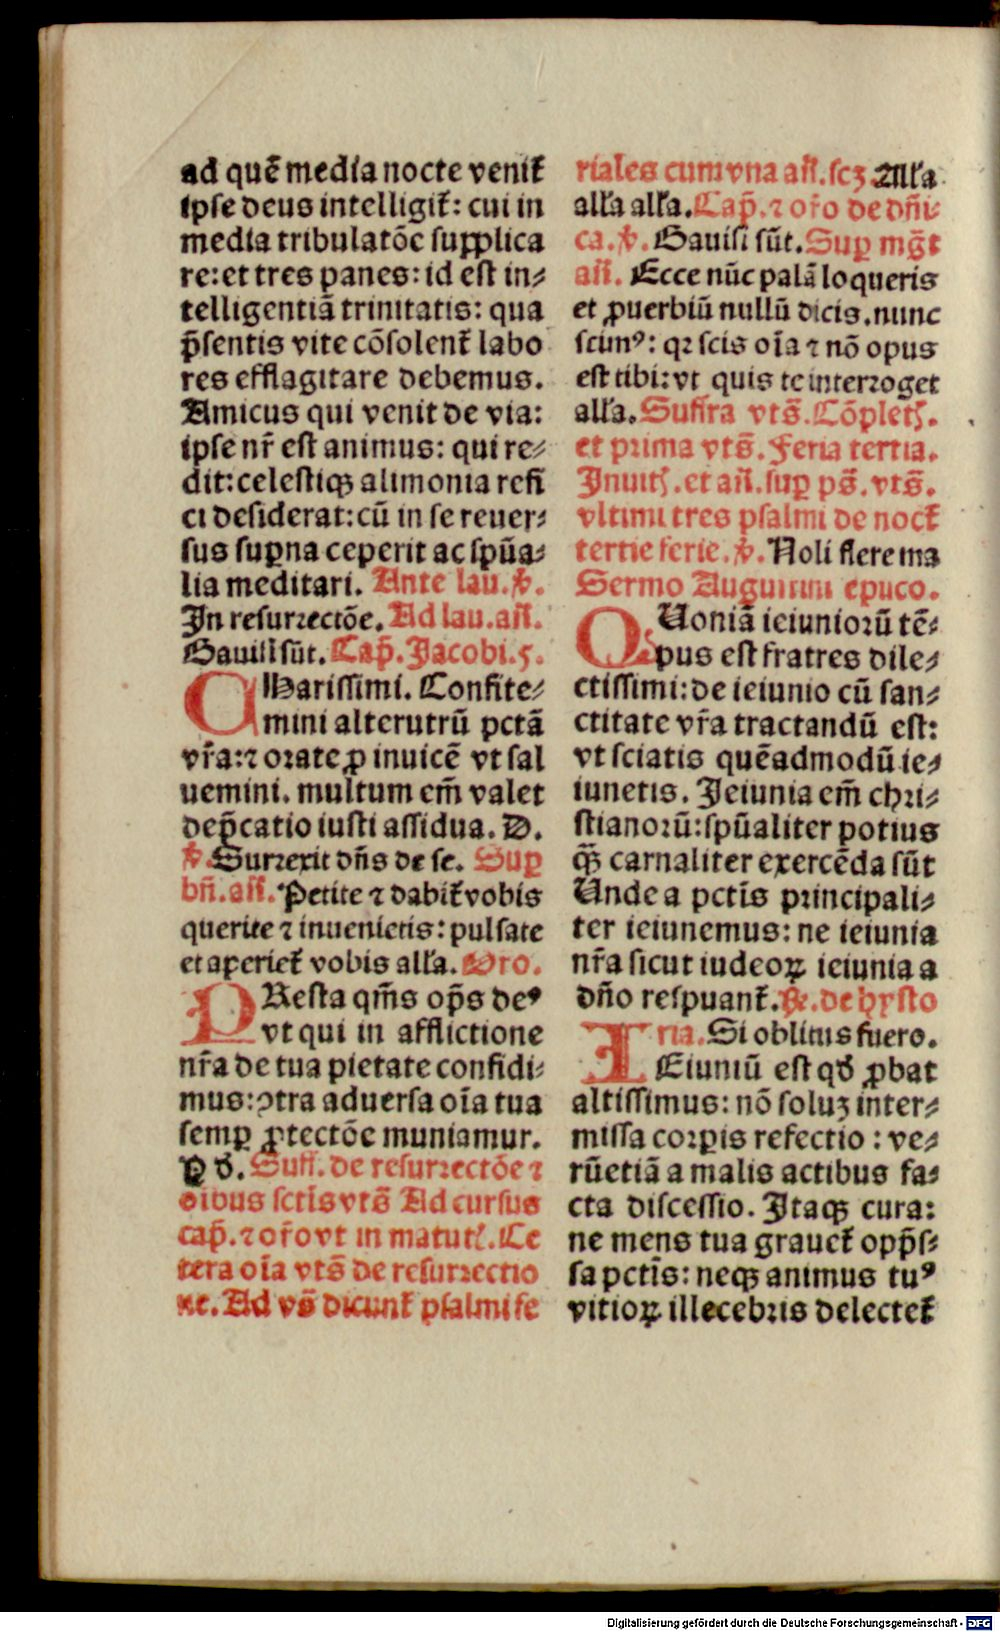 ad quē media nocte venit᷑
ipse deus intelligit᷑: cui in
media tribulatōe supplica
re: et tres panes: id est in⸗
telligentiā trinitatis: qua
p̄sentis vite cōsolent᷑ labo
res efflagitare debemus.
Amicus qui venit de via:
ipse nr̄ est animus: qui re⸗
dit: celestiqꝫ alimonia refi
ci desiderat: cū in se reuer⸗
sus suꝑna ceperit ac spūa⸗
lia meditari. Ante lau. ꝟ.
In resurrectōe. Ad lau. añ.
Gauisi sūt. Cap̄. Jacobi. 5.
CHarissimi. Confite⸗
mini alterutrū pctā
vr̄a: ⁊ orate ꝓ inuicē vt sal
uemini. multum em̄ valet
dep̄catio iusti assidua. D.
ꝟ. Surrexit dñs de se. Suꝑ
bñ. añ. Petite ⁊ dabit᷑ vobis
querite ⁊ inuenietis: pulsate
et aperiet᷑ vobis all'a. Oro.
PResta qm̄s op̄s deꝰ
vt qui in afflictione
nr̄a de tua pietate confidi⸗
mus: ꝯtra aduersa oīa tua
semꝑ ꝓtectōe muniamur.
P d̄. Suff. de resurrectōe ⁊
oibus sctīs vts̄ Ad cursus
cap̄. ⁊ or̄o vt in matut᷑. Ce
tera oīa vts̄ de resurrectio
ne. Ad vs̄ dicunt᷑ psalmi fe
riales cum vna añ. scꝫ All'a
all'a all'a. Cap̄. ⁊ or̄o de dñi⸗
ca. ꝟ. Gauisi sūt. Suꝑ mḡt
añ. Ecce nūc palā loqueris
et ꝓuerbiū nullū dicis. nunc
scimꝰ: qꝛ scis oīa ⁊ nō opus
est tibi: vt quis te interroget
all'a. Suffra vts̄. Cōplet᷑.
et prima vts̄. Feria tertia.
Inuit᷑. et añ. suꝑ ps̄. vts̄.
vltimi tres psalmi de noct᷑
tertie ferie. ꝟ. Noli flere ma
Sermo Augustini
QUoniā ieiuniorū tē⸗
pus est fratres dile⸗
ctissimi: de ieiunio cū san⸗
ctitate vr̄a tractandū est:
vt sciatis quēadmodū ie⸗
iunetis. Ieiunia em̄ chri⸗
stianorū: spūaliter potius
qͣꝫ carnaliter exercēda sūt
Unde a pctīs principali⸗
ter ieiunemus: ne ieiunia
nr̄a sicut iudeoꝝ ieiunia a
dño respuant᷑. ℟. de hysto
ria. Si oblitus fuero.
IEiuniū est qd̄ ꝓbat
altissimus: nō soluꝫ inter⸗
missa corꝑis refectio: ve⸗
rūetiā a malis actibus fa⸗
cta discessio. Itaqꝫ cura:
ne mens tua grauet᷑ opp̄s⸗
sa pctīs: neqꝫ animus tuꝰ
vitioꝝ illecebris delectet᷑
Digitalisierung gefördert durch die Deutsche Forschungsgemeinschaft - DFG